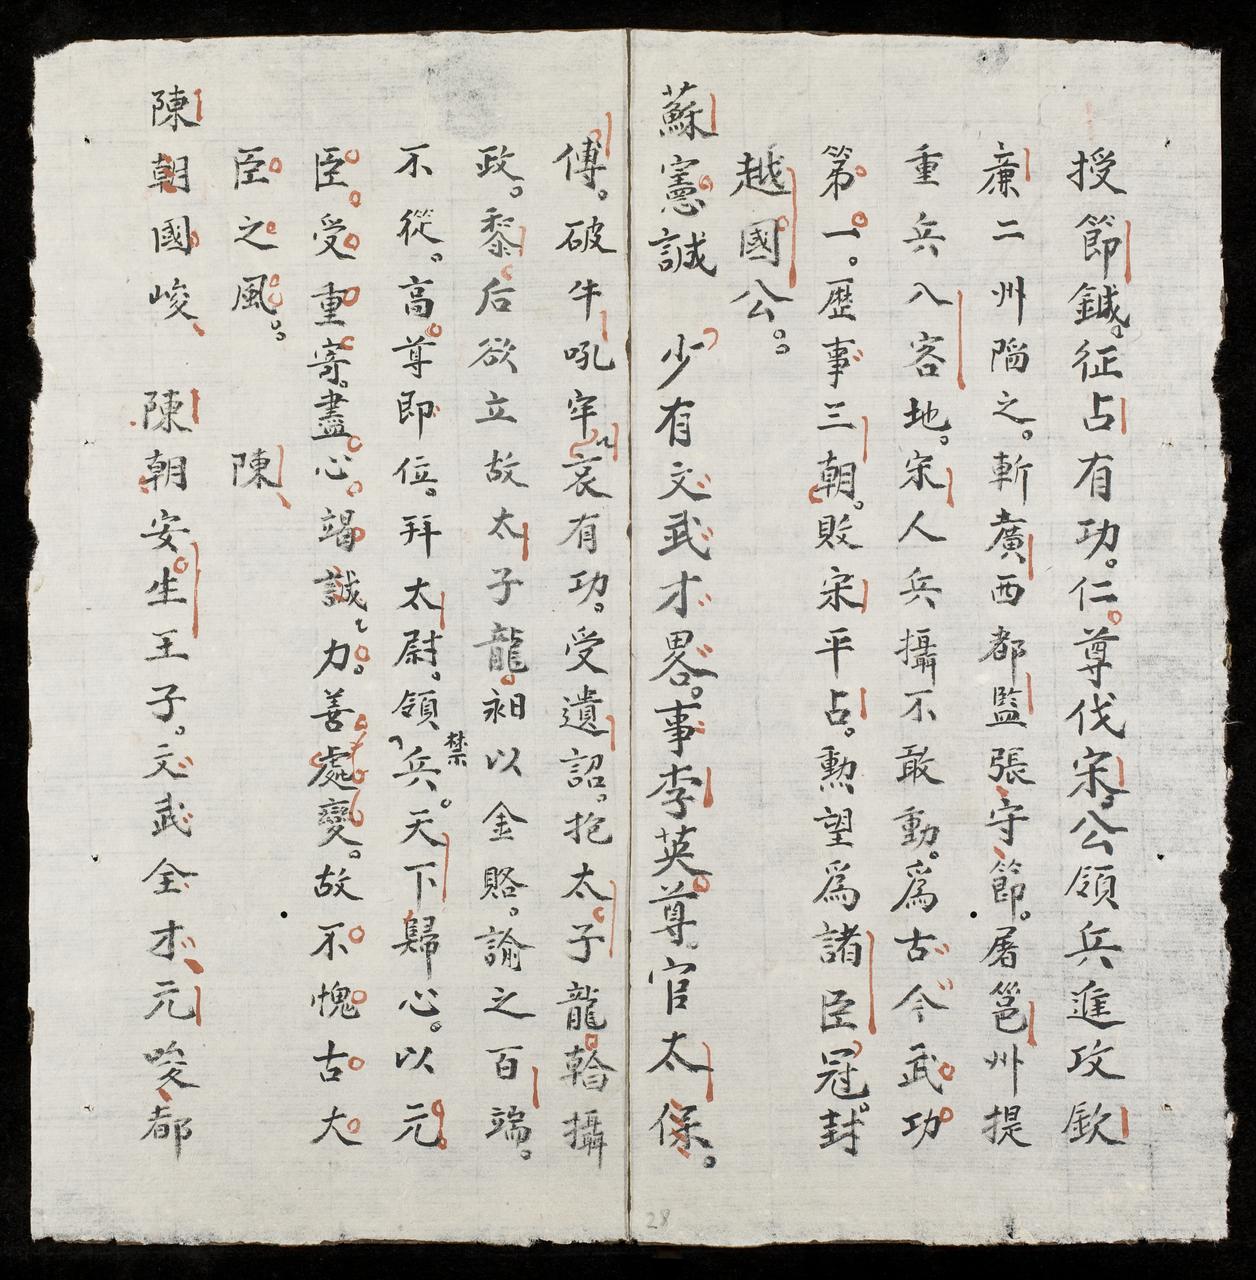 授節鉞征占有功仁尊伐宋公領兵進攻欽
廉二州陷之斬廣西都監張守節屠邕州提
重兵入客地宋人兵攝不敢動爲古今武功
第一歷事三朝敗宋平占勲望爲諸臣冠封
越國公
蘇憲誠 少有文武才畧事李英尊官太保
傅破牛吼牢哀有功受遺詔抱太子龍𣉙攝
政黎后欲立故太子龍昶以金賂諭之百端
不從高尊即位拜太尉領禁兵天下歸心以元
臣受重寄盡心竭誠力善處變故不愧古大
臣之風 陳
陳朝國峻 陳朝安生王子文武全才元唆都
28